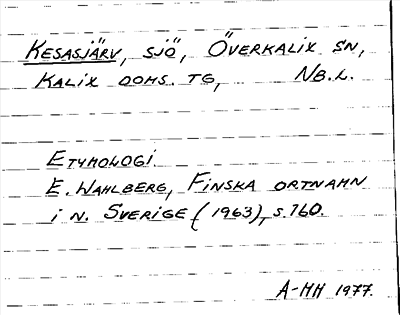 KESASJÄRV, SJÖ, ÖVERKALIX SN,
KALIX DOMS. TG, NB.L.
ETYMOLOGI.
E. WAHLBERG, FINSKA ORTNAMN
I N. SVERIGE (1963), S. 160.
A-HH 1977.